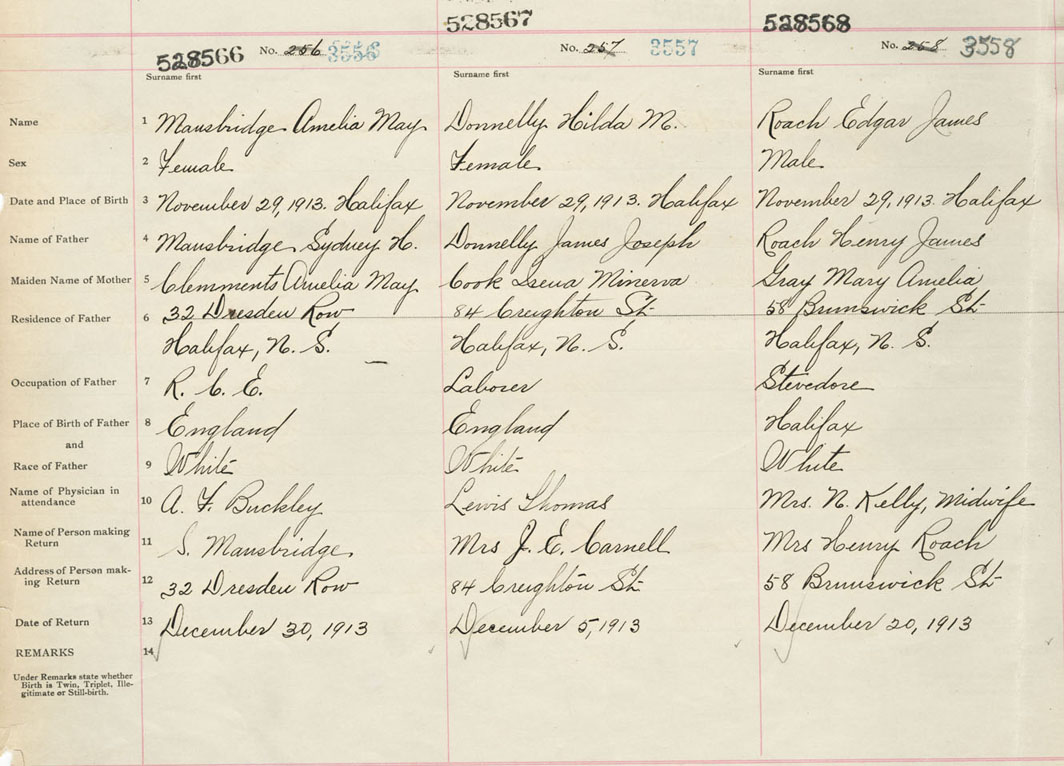 528566 528567 528568
No. 256 3556 No. 257 3557 No. 258 3558
Surname first Surname first Surname first
Name 1 Mansbridge Amelia May Donnelly Hilda M. Roach Edgar James
Sex 2 Female Female Male
Date and Place of Birth 3 November 29, 1913. Halifax November 29, 1913. Halifax November 29, 1913. Halifax
Name of Father 4 Mansbridge Sydney H. Donnelly James Joseph Roach Henry James
Maiden Name of Mother 5 Clemments Amelia May Cook Irena Minerva Gray Mary Amelia
Residence of Father 6 32 Dresden Row 84 Creighton St. 58 Brunswick St.
Halifax, N. S. Halifax, N. S. Halifax, N. S.
Occupation of Father 7 R. C. E. Laborer Stevedore
Place of Birth of Father 8 England England Halifax
and
Race of Father 9 White White White
Name of Physician in
attendance 10 A. F. Buckley Lewis Thomas Mrs. N. Kelly, Midwife
Name of Person making
Return 11 S. Mansbridge Mrs J. E. Carnell Mrs Henry Roach
Address of Person mak-
ing Return 12 32 Dresden Row 84 Creighton St. 58 Brunswick St.
Date of Return 13 December 30, 1913 December 5, 1913 December 20, 1913
REMARKS 14
Under Remarks state whether
Birth is Twin, Triplet, Ille-
gitimate or Still-birth.